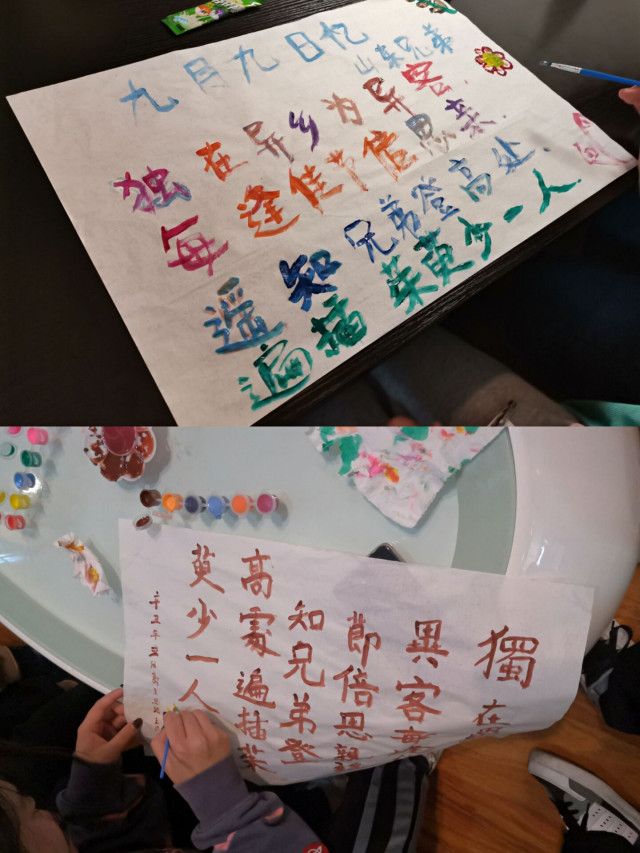 九月九日忆
山东兄弟
独在异乡为异客.
每逢佳节倍思亲.
遥知兄弟登高处.
遍插茱萸少一人.
獨在
異客
節倍思親
知兄弟登
高處遍插茱
萸少一人
辛丑年